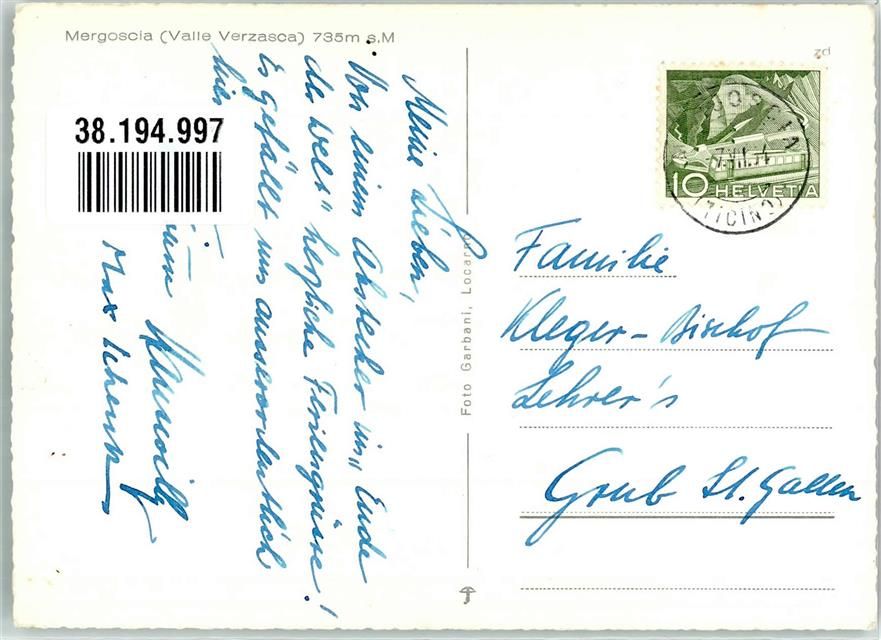 Mergoscia (Valle Verzasca) 735m s.M
38.194.997
Meine Lieben,
Von einem Abstecher ins „Ende
der Welt" herzliche Feriengrüsse!
Es gefällt uns ausserordentlich
hier
Max
Foto Garbani, Locarno
10 HELVETIA
(TICINO)
Familie
Kleger-Bischof
Lehrer's
Grub St. Gallen